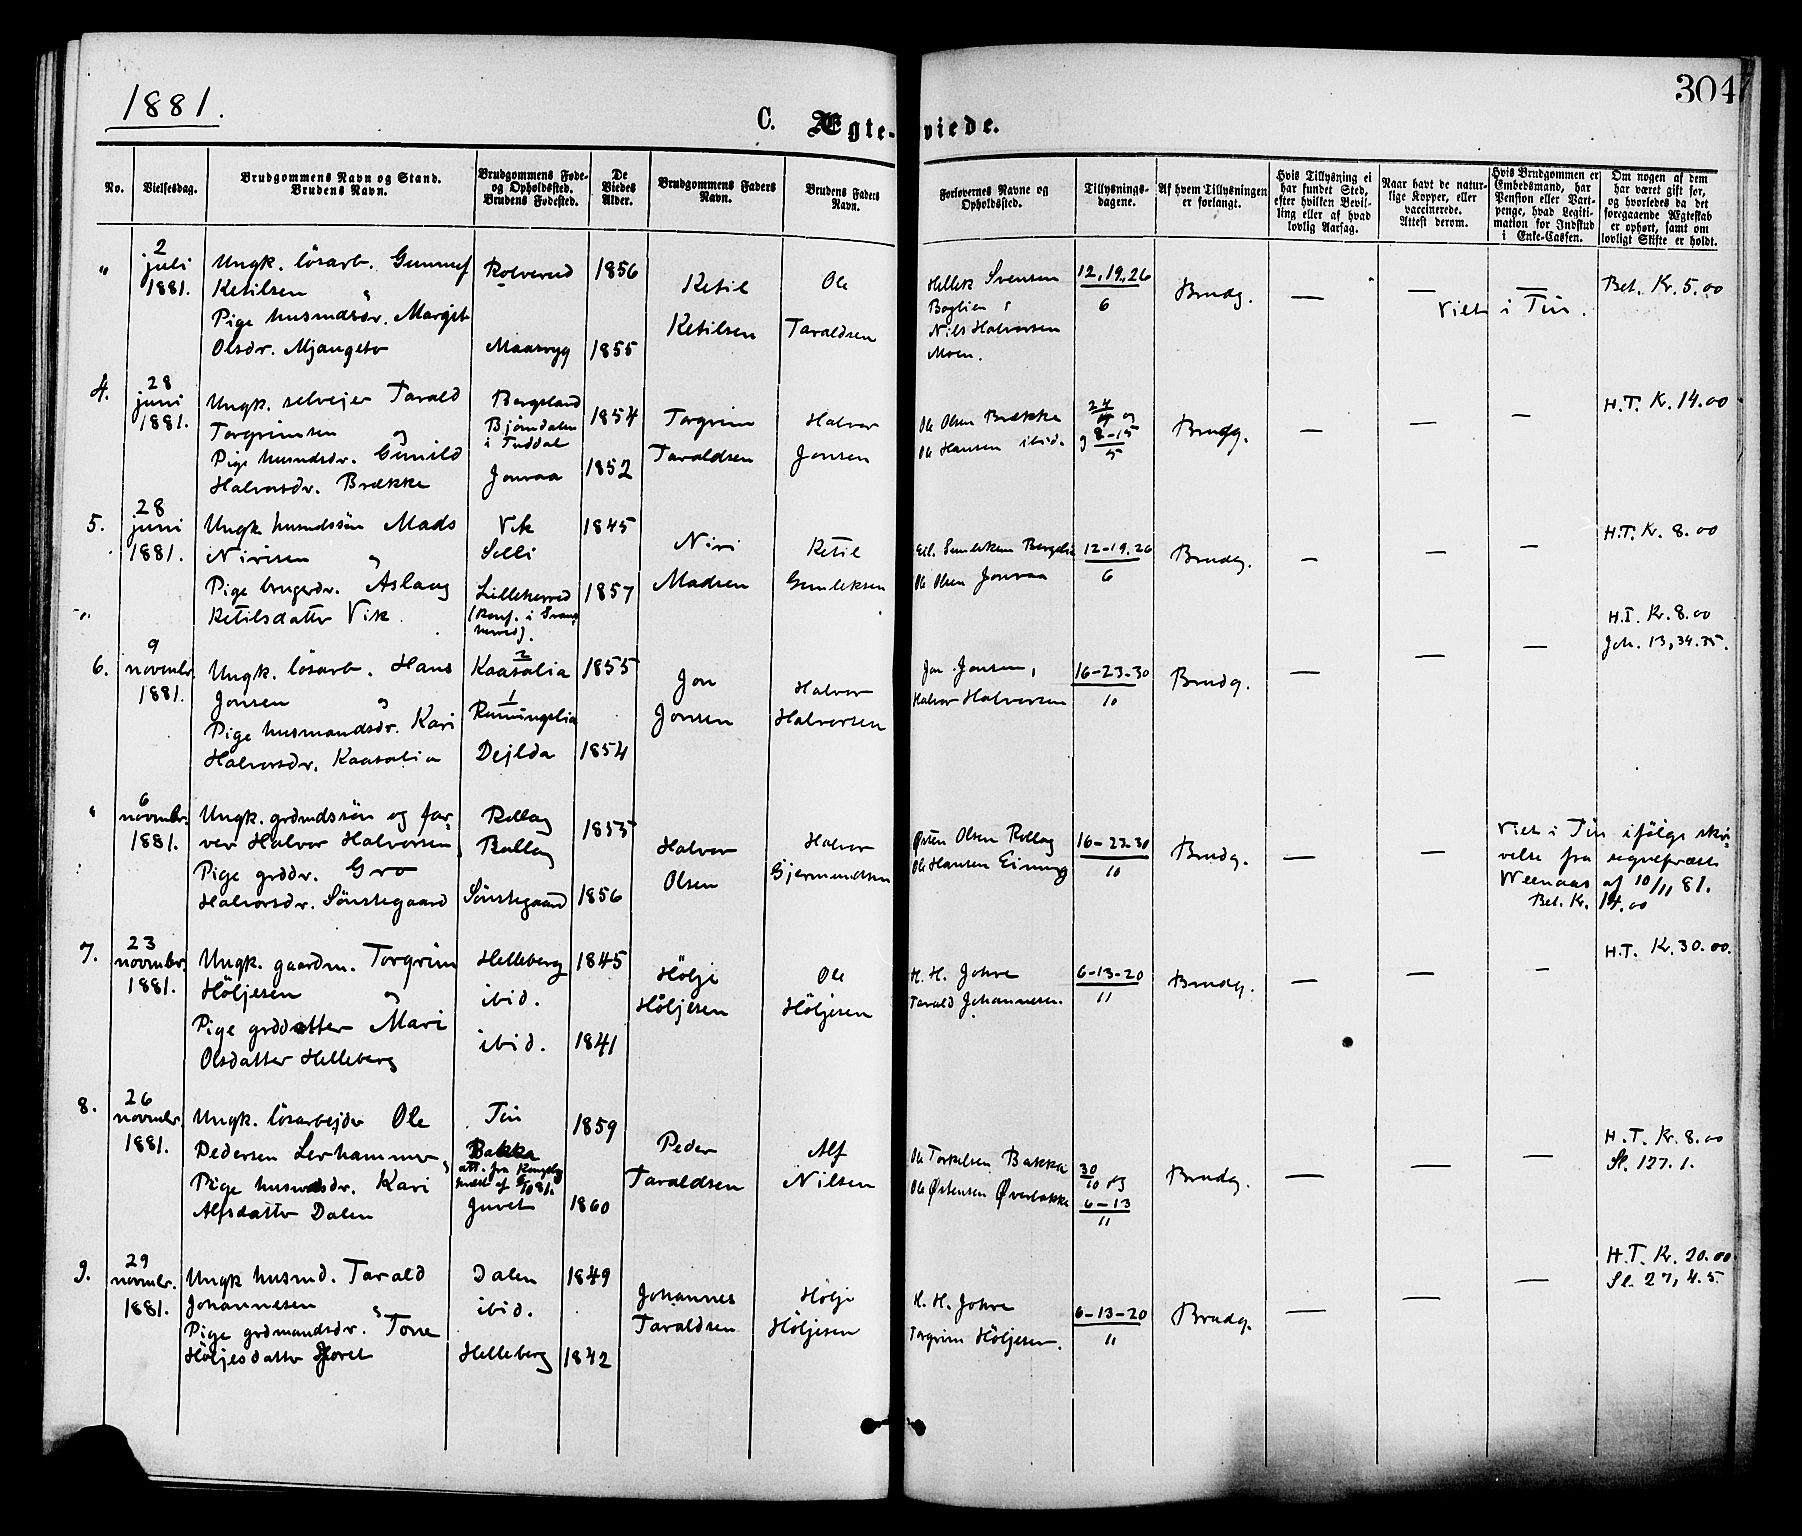 1881.
304
C. Ægte-viede.
No.
Vielsesdag.
Brudgommens Navn og Stand.
Brudens Navn.
Brudgommens Føde-
og Opholdssted.
Brudens Fødested.
De
Viedes
Alder.
Brudgommens Faders
Navn.
Brudens Faders
Navn.
Forlovernes Navne og
Opholdssted.
Tillysnings-
dagene.
Af hvem Tillysningen
er forlangt.
Hvis Tillysning ei
har fundet Sted,
efter hvilken Bevil-
ling eller af hvad
lovlig Aarsag.
Naar havt de natur-
lige Kopper, eller
vaccinerede.
Attest derom.
Hvis Brudgommen er
Embedsmand, har
Pension eller Vart-
penge, hvad Legiti-
mation for Indskud
i Enke-Cassen.
Om nogen af dem
har været gift før,
og hvorledes da det
foregaaende Ægteskab
er ophørt, samt om
lovligt Skifte er holdt.
"
2
juli
1881.
Ungk. løsarb. Gunnuf
Ketilsen og
Pige husmdsdr. Margit
Olsdr. Mjangeto
Rolverud
Maarryg
1856
1855
Ketil
Ketilsen
Ole
Taraldsen
Hellek Svensen
Boglien
Nils Halvorsen
Moen.
12, 19, 26
6
Brudg.
—
—
—
Viet i Tin.
Bet. Kr. 5.00
4.
28
juni
1881.
Ungk. selvejer Tarald
Torgrimsen og
Pige husmdsdr. Gunild
Halvorsdr. Brække
Bergeland
Bjørndalen
i Tuddal
Jonraa
1854
1852
Torgrim
Taraldsen
Halvor
Jonsen
Ole Olsen Brække
Ole Hansen ibid.
24
4 og
8-15
5
Brudg.
—
—
—
H.T. K. 14.00
5.
28
juni
1881.
Ungk. husmdssøn Mads
Nirisen og
Pige brugerdr. Aslaug
Ketilsdatter Vik.
Vik
Selli
Lilleherred
(konf. i Svang
herred).
1845
1857
Niri
Madsen
Ketil
Gunleksen
Gunleksen
Ole Olsen Jonraa
12-19.26
6
Brudg.
—
—
—
H.T. Kr. 8.00
6.
9
novembr.
1881.
Ungk. løsarb. Hans
Jonsen og
Pige husmandsdr. Kari
Halvorsdr. Kaasalia
2
Kaasalia
1
Runningslia
Dejlda
1855
1854
Jon
Jonsen
Halvor
Halvorsen
Jon Jonsen,
Halvor Halvorsen
16-23-30
10
Brudg.
—
—
—
H.T. Kr. 8.00
Joh. 13, 34.35.
"
6
novembr.
1881.
Ungk. grdmdssøn og far-
ver Halvor Halvorsen,
Pige grddr. Gro
Halvorsdr. Sønstegaard
Rollag
Bollag
Sønstegaard
1855
1856
Halvor
Olsen
Halvor
Gjermundsen
Østen Olsen Rollag
Ole Hansen Einung
16-23-30
10
Brudg.
—
—
Viet i Tin ifølge skri-
velse fra sognepræst
Weenaas af 10/11 81.
Bet. Kr. 14.00
7.
23
novembr.
1881.
Ungk. gaardm. Torgrim
Høljesen og
Pige grddatter Mari
Olsdatter Helleberg
Helleberg
ibid.
ibid.
1845
1841
Hølje
Høljesen
Ole
Høljesen
H. H. Johre
Tarald Johannesen.
6-13-20
11
Brudg.
—
—
—
H.T. Kr. 30.00.
8.
26
novembr.
1881.
Ungk. løsarbejder Ole
Pedersen Lerhammer
Pige husmdsdr. Kari
Alfsdatter Dalen
Tin
Bakka
att. fra Kongsberg
Juvet
1859
1860
Peder
Taraldsen
Alf
Nilsen
Ole Torkelsen Bakka
Ole Østensen Øverbakke
30
10 og
6-13
11
Brudg.
—
—
—
H.T. Kr. 8.00
Sl. 127.1.
9.
29
novembr.
1881.
Ungk husmd. Tarald
Johannesen og
Pige grdmandsdr. Tone
Høljesdatter
Dalen
ibid.
Helleberg
1849
1842
Johannes
Taraldsen
Hølje
Høljesen
H. H. Johre
Torgrim Høljesen.
6-13-20
11
Brudg.
—
—
—
H.T. Kr. 20.00
Sl. 27, 4.5.